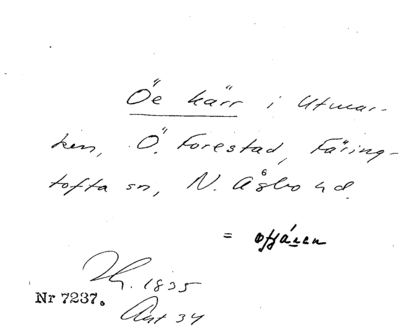 Öe kärr i Utmar-
ken, Ö. Forestad, Färing-
tofta sn, N. Åsbo hd.
= ofjáren
1835
Nr 7237.
Akt 34